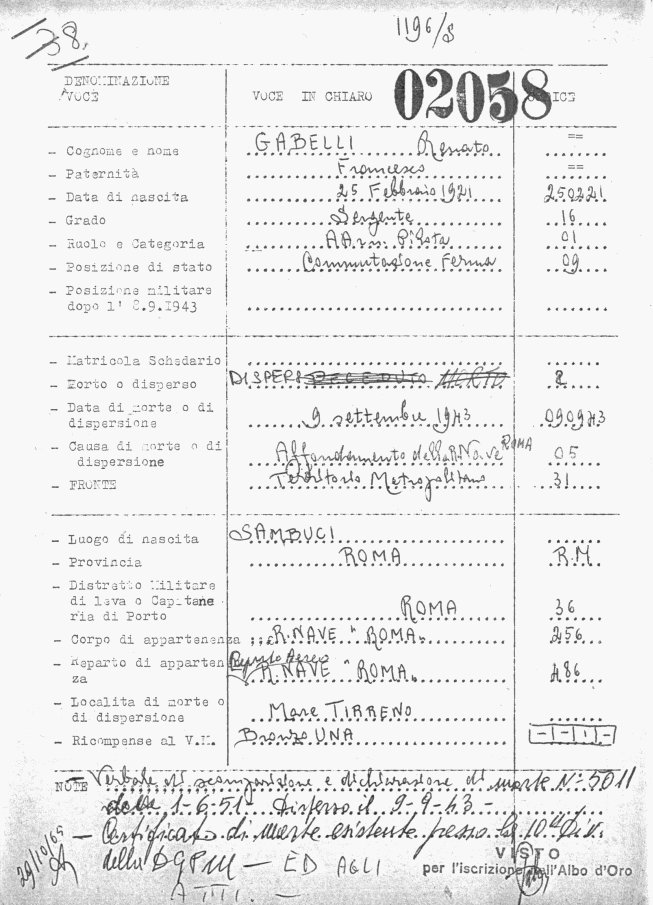 38.
1196/S
DENOMINAZIONE VOCE IN CHIARO 02058 CODICE
VOCE
- Cognome e nome GABELLI Renato ==
- Paternità Francesco ==
- Data di nascita 25 Febbraio 1921 250221
- Grado Sergente 16
- Ruolo e Categoria AA.r.n. Pilota 01
- Posizione di stato Commutazione Ferma 09
- Posizione militare
dopo l' 8.9.1943
- Matricola Schedario
- Morto o disperso DISPERSO DECEDUTO MORTO 2
- Data di morte o di
dispersione 9 settembre 1943 090943
- Causa di morte o di
dispersione Affondamento della R. Nave ROMA 05
- FRONTE Territorio Metropolitano 31
- Luogo di nascita SAMBUCI
- Provincia ROMA R.M
- Distretto Militare
di leva o Capitane
ria di Porto ROMA 36
- Corpo di appartenenza R. NAVE "ROMA" 256
- Reparto di apparten Reparto Aereo
za R. NAVE "ROMA" 486
- Localita di morte o
di dispersione Mare TIRRENO
- Ricompense al V.M. Bronzo UNA -1-1-1-
NOTE - Verbale di scomparizione e dichiarazione di morte N° 5011
della 1-6-51 - Disperso il 9-9-43 -
- Certificato di morte esistente presso la 10ª Div.
della DGPM - ED AGLI
ATTI. -
29/10/69
VISTO
per l'iscrizione nell'Albo d'Oro